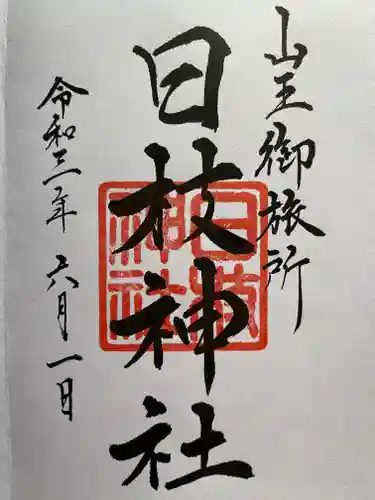 山王御旅所
日枝神社
令和三年六月一日
日枝神社